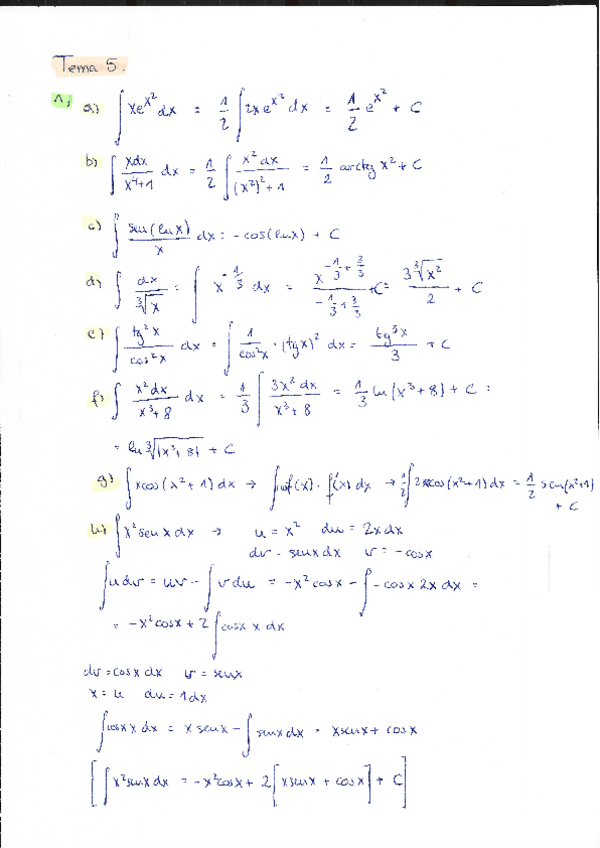 Tema 5.
1, a) ∫xe^(x²)dx = 1/2 ∫2xe^(x²)dx = 1/2 e^(x²) + C
b) ∫ xdx/(x⁴+1) dx = 1/2 ∫ x²dx/((x²)²+1) = 1/2 arctg x² + C
c) ∫ sen(lnx)/x dx = -cos(lnx) + C
d) ∫ dx/∛x = ∫ x^(-1/3) dx = x^(-1/3+3/3)/(-1/3+3/3) + C = 3∛x²/2 + C
e) ∫ tg²x/cos²x dx = ∫ 1/cos²x · (tgx)² dx = tg³x/3 + C
f) ∫ x²dx/(x³+8) dx = 1/3 ∫ 3x²dx/(x³+8) = 1/3 ln|x³+8| + C =
= ln ∛|x³+8| + C
g) ∫xcos(x²+1)dx → ∫ f(x) · f'(x) dx → 1/2 ∫2xcos(x²+1)dx = 1/2 sen(x²+1)
+ C
h) ∫x²senxdx → u = x² du = 2xdx
dv = senxdx v = -cosx
∫udv = uv - ∫vdu = -x²cosx - ∫-cosx 2xdx =
= -x²cosx + 2∫cosx x dx
dv = cosxdx v = senx
x = u du = 1dx
∫cosx x dx = x senx - ∫senxdx = xsenx + cosx
[∫x²senxdx = -x²cosx + 2[xsenx + cosx] + C]